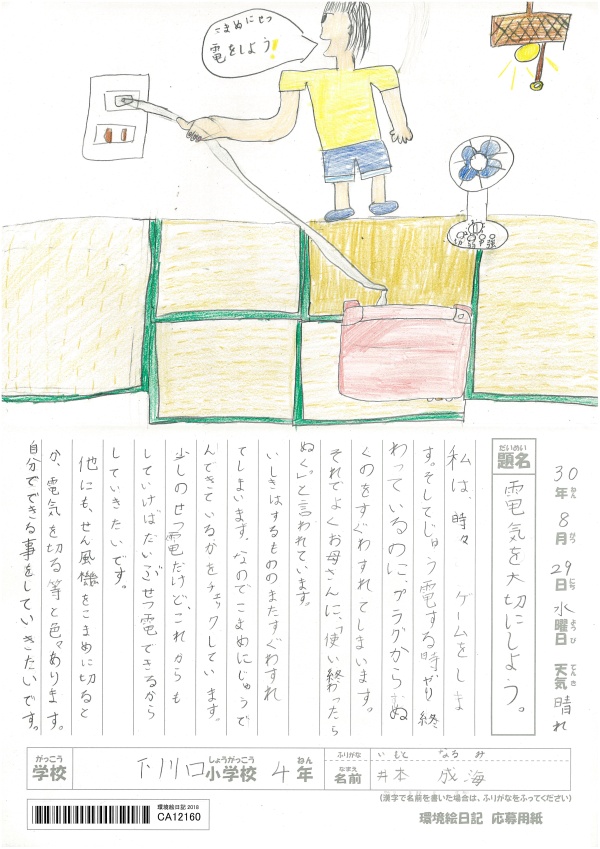 こまめにせつ
電をしよう!
切 弱 中 強
30年ねん8月がつ29日にち水曜日ようび 天気てんき晴れ
だいめい
題名
電気を大切にしよう。
私は、時々 ゲームをしま
す。そしてじゅう電する時やり終
わっているのに、プラグからぬ
くのをすぐわすれてしまいます。
それでよくお母さんに、「使い終わったら
ぬく。」と言われています。
いしきはするもののまたすぐわすれ
てしまいます。なのでこまめにじゅうで
んできているかをチェックしています。
少しのせつ電だけど、これからも
していけばだいぶせつ電できるから
していきたいです。
他にも、せん風機をこまめに切ると
か、電気を切る等と色々あります。
自分でできる事をしていきたいです。
がっこう しょうがっこう ねん ふりがな いもと なるみ
学校 下川口 小学校 4年 なまえ 名前 井本 成海
(漢字で名前を書いた場合は、ふりがなをふってください)
環境絵日記2018
CA12160
環境絵日記 応募用紙